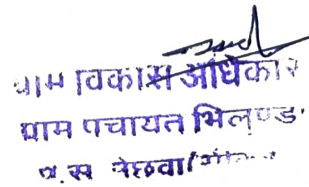 ग्राम विकास अधिकारी
ग्राम पंचायत भिलुण्डा
पं.स. नेछवा